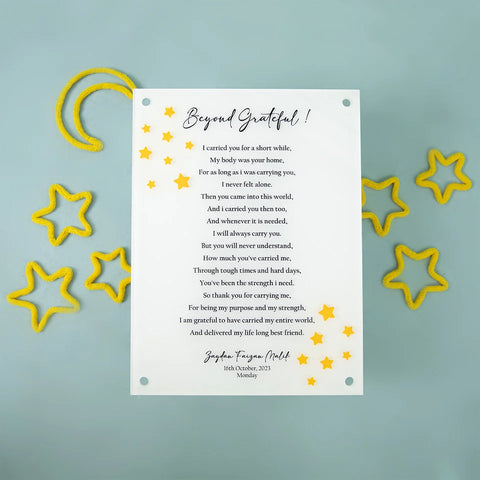 Beyond Grateful !
I carried you for a short while,
My body was your home,
For as long as i was carrying you,
I never felt alone.
Then you came into this world,
And i carried you then too,
And whenever it is needed,
I will always carry you.
But you will never understand,
How much you've carried me,
Through tough times and hard days,
You've been the strength i need.
So thank you for carrying me,
For being my purpose and my strength,
I am grateful to have carried my entire world,
And delivered my life long best friend.
Zaydan Faizan Malik
16th October, 2023
Monday